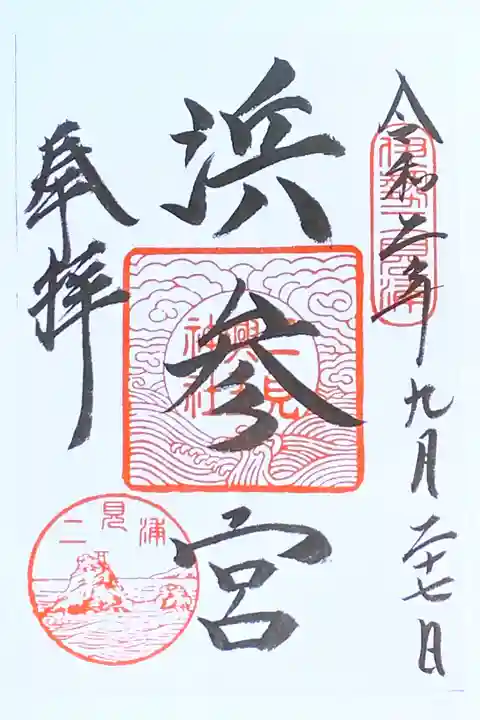 令和二年九月二十七日
伊勢二見浦
浜参宮
二見
興玉
神社
奉拝
二見浦